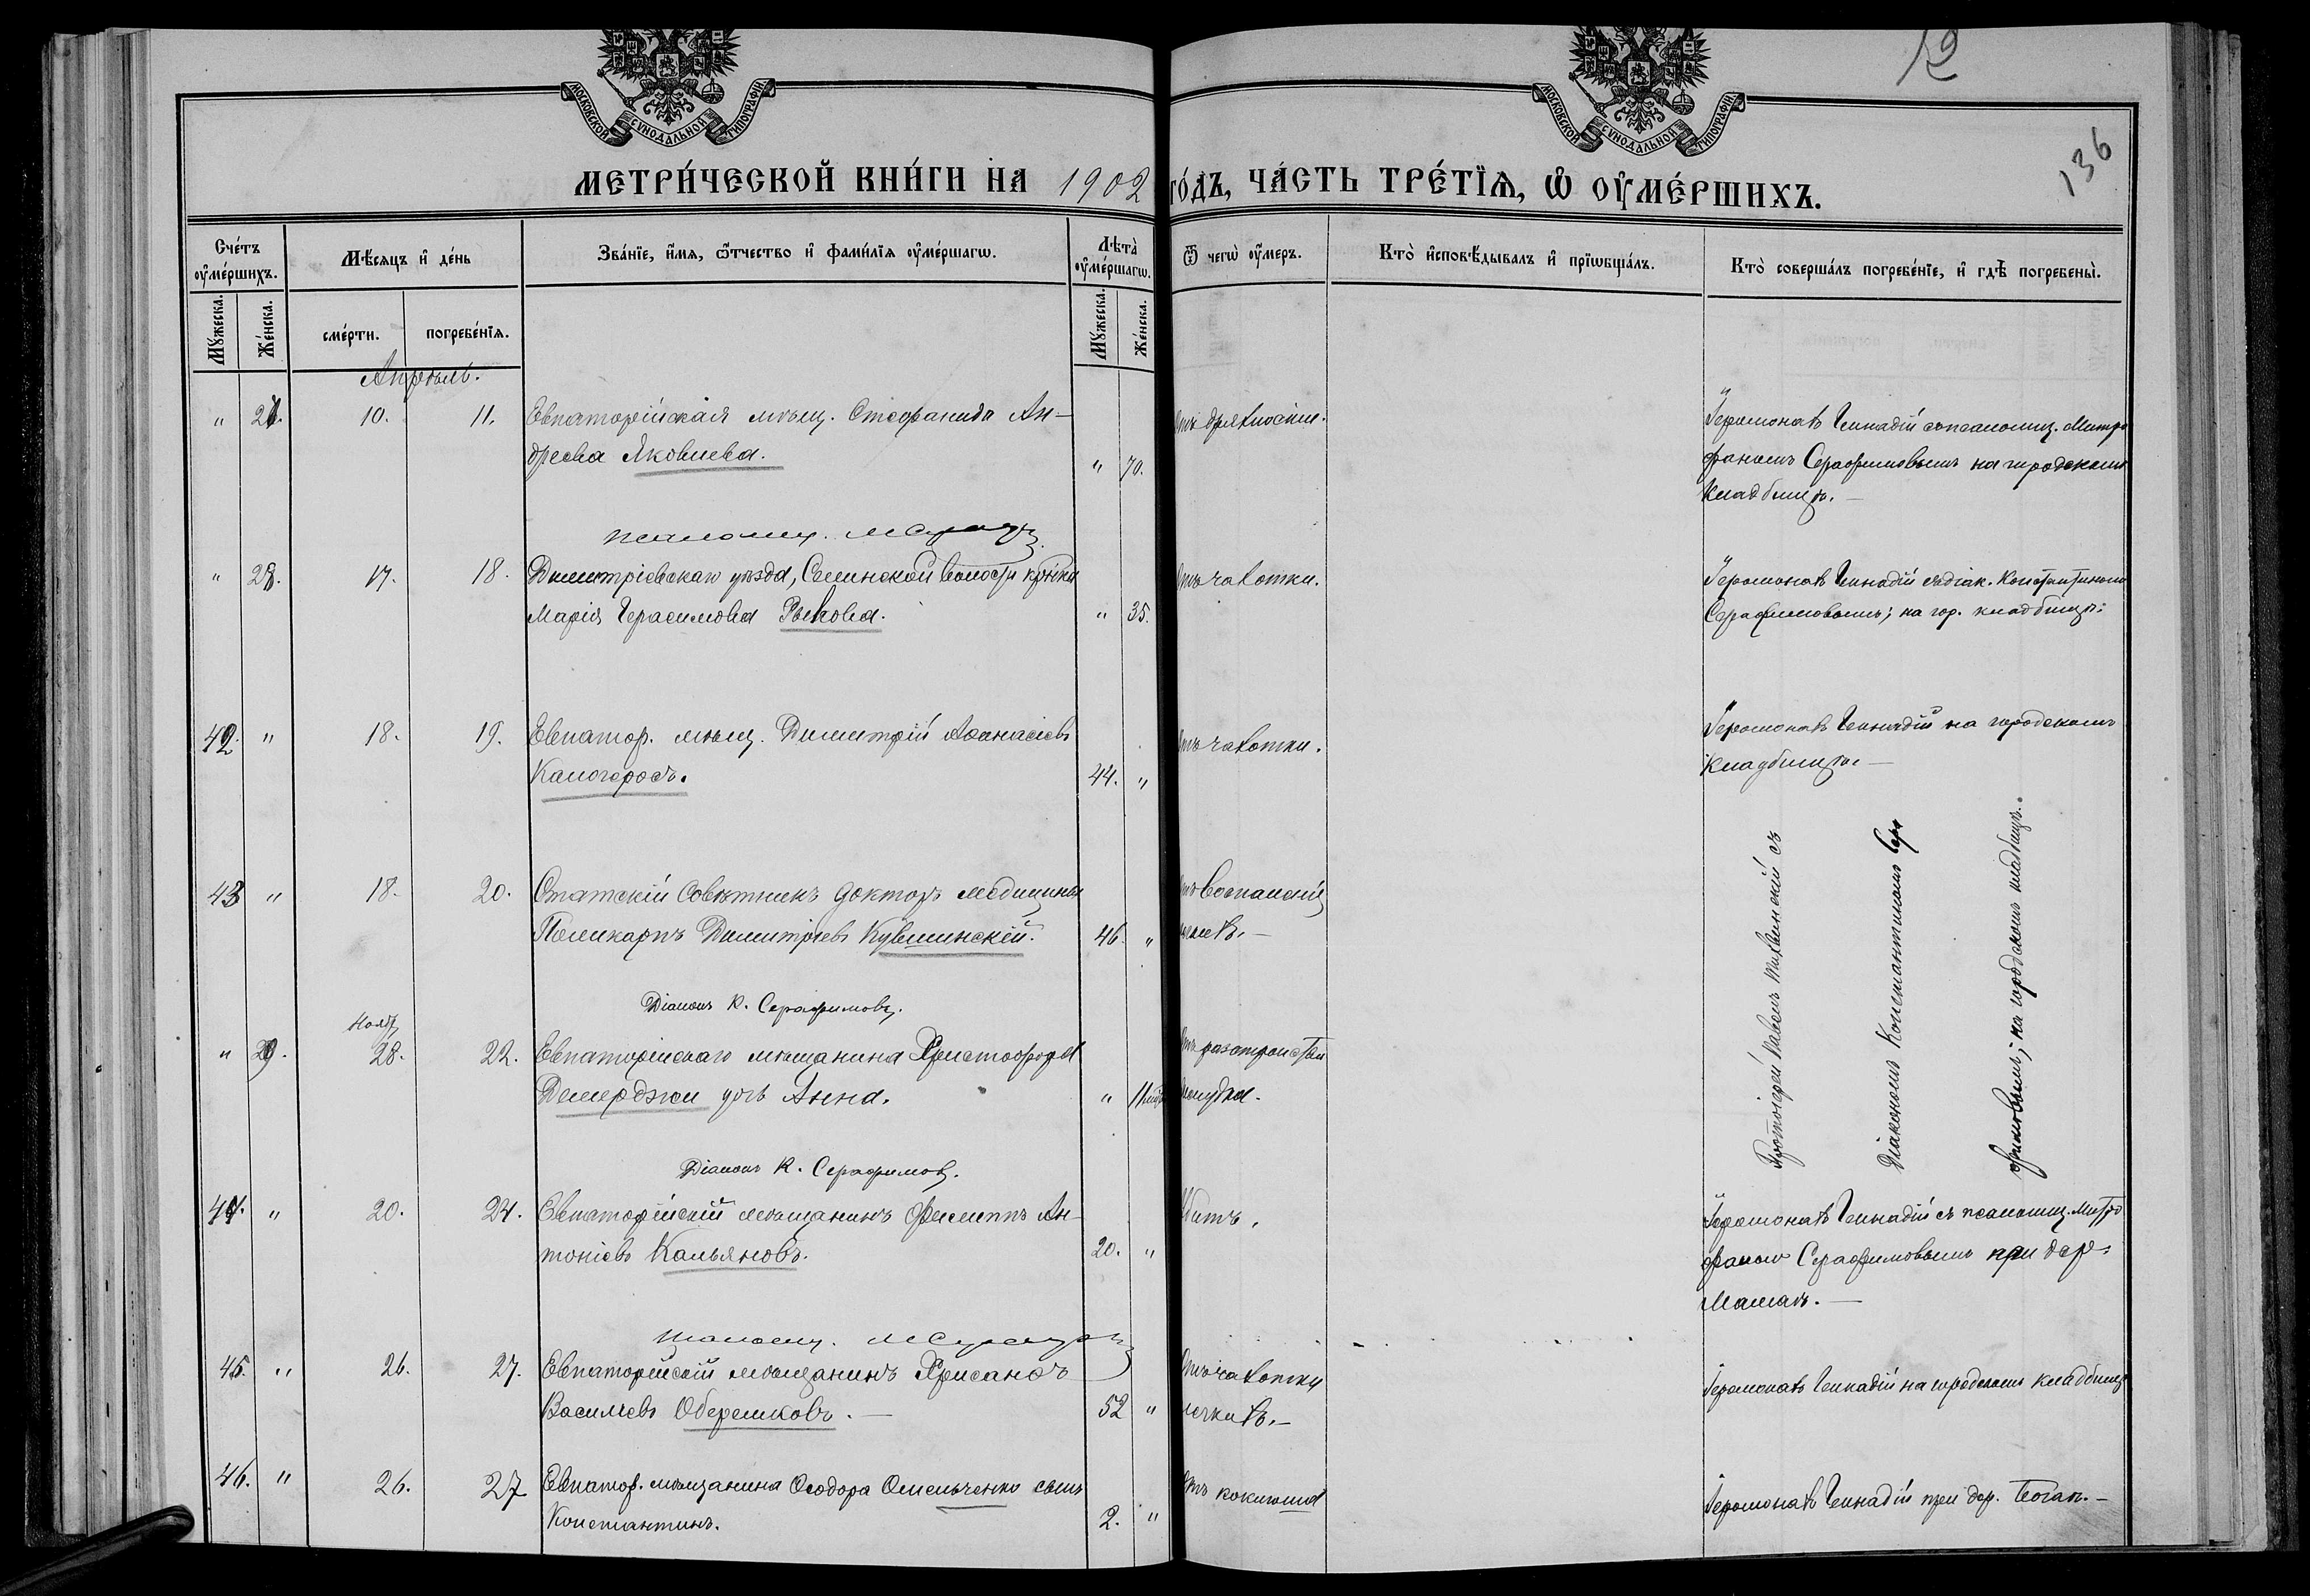 МОСКОВСКОЙ СѴНОДАЛЬНОЙ ТИПОГРАФІИ
МОСКОВСКОЙ СѴНОДАЛЬНОЙ ТИПОГРАФІИ
136
МЕТРИ́ЧЕСКОЙ КНИ́ГИ НА 1902 ГО́ДЪ, ЧА́СТЬ ТРЕ́ТЇѦ, Ѡ҆ ОУ҆МЕ́РШИХЪ.
Сче́тъ оу҆ме́ршихъ.
Мѣ́сяцъ и҆ де́нь
Зва́нїе, и҆́мя, ѻ҆́тчество и҆ фами́лїя оу҆ме́ршагѡ.
Лѣта̀ оу҆ме́ршагѡ.
Ѿ чегѡ̀ оу҆́меръ.
Кто̀ и҆сповѣ́дывалъ и҆ прїѡбща́лъ.
Кто̀ соверша́лъ погребе́нїе, и҆ гдѣ̀ погребены̀.
Мꙋ́жеска.
Же́нска.
сме́рти.
погребе́нїѧ.
Мꙋ́жеска.
Же́нска.
Апрѣль.
" 27. 10. 11. Евпаторійская мѣщ. Стефанида Ан-
дреева Яковлева. " 70.
отъ дряхлости.
Іеромонахъ Геннадій съ псаломщ. Митро
фаномъ Серафимовымъ на городскомъ
кладбищѣ.—
псаломщ. М Сераф
" 28. 17. 18. Димитріевскаго уѣзда, Селинской волости кр-нка
Марія Герасимова Рыкова. " 35.
отъ чахотки.
Іеромонахъ Геннадій съ діак. Константиномъ
Серафимовымъ; на гор. кладбищѣ.
42. " 18. 19. Евпатор. мѣщ. Димитрій Аѳанасіевъ
Калогеросъ. 44. "
отъ чахотки.
Іеромонахъ Геннадій на городскомъ
кладбищѣ.—
43 " 18. 20. Статскій совѣтникъ докторъ медицины
Поликарпъ Димитріевъ Кувшинскій. 46. "
отъ воспаленія
легкихъ.—
Протоіерей Павелъ Тихвинскій съ
Діакономъ Константиномъ Сера
фимовымъ; на городскомъ кладбищѣ.
Діаконъ К. Серафимовъ.
Ноябр
" 29. 28. 22. Евпаторійскаго мѣщанина Христофора
Демерджи дочь Анна. " 11 мѣс
отъ разстройства
желудка.
Діаконъ К. Серафимовъ.
44. " 20. 24. Евпаторійскій мѣщанинъ Филиппъ Ан-
тоніевъ Кальяновъ. 20. "
Убитъ.
Іеромонахъ Геннадій съ псаломщ. Митро
фаномъ Серафимовымъ при дер.
Мамай.—
псаломщ. М Сераф
45. " 26. 27. Евпаторійскій мѣщанинъ Хрисанѳъ
Васильевъ Оберемковъ.— 52 "
отъ чахотки
легкихъ.—
Іеромонахъ Геннадій на городскомъ кладбищѣ
46. " 26. 27 Евпатор. мѣщанина Ѳеодора Омельченко сынъ
Константинъ. 2. "
отъ коклюша
Іеромонахъ Геннадій при дер. Богай.—